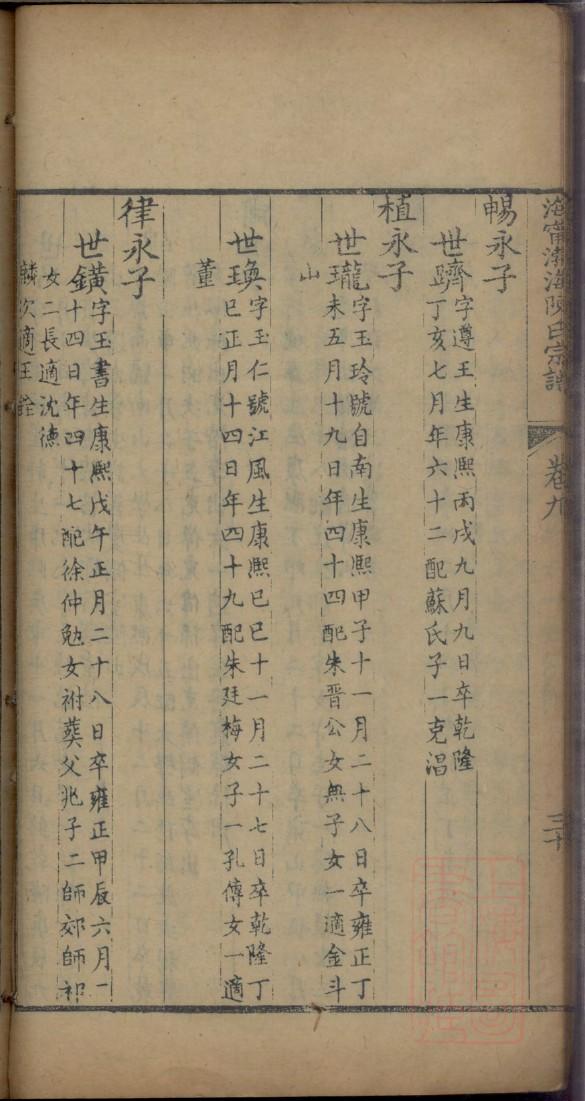 海寧渤海陳氏宗譜
卷九
三十
暢永子
世躋
字遵王生康熙丙戌九月九日卒乾隆
丁亥七月年六十二配蘇氏子一克淐
植永子
世瓏
字玉玲號自南生康熙甲子十一月二十八日卒雍正丁
未五月十九日年四十四配朱晋公女無子女一適金斗
山
世瑍
字玉仁號江風生康熙己巳十一月二十七日卒乾隆丁
巳正月十四日年四十九配朱廷梅女子一孔傳女一適
董
律永子
世鐄
字玉書生康熙戊午正月二十八日卒雍正甲辰六月一
十四日年四十七配徐仲勉女祔葬父兆子二師郊師祁
女二長適沈德
麟次適王銓